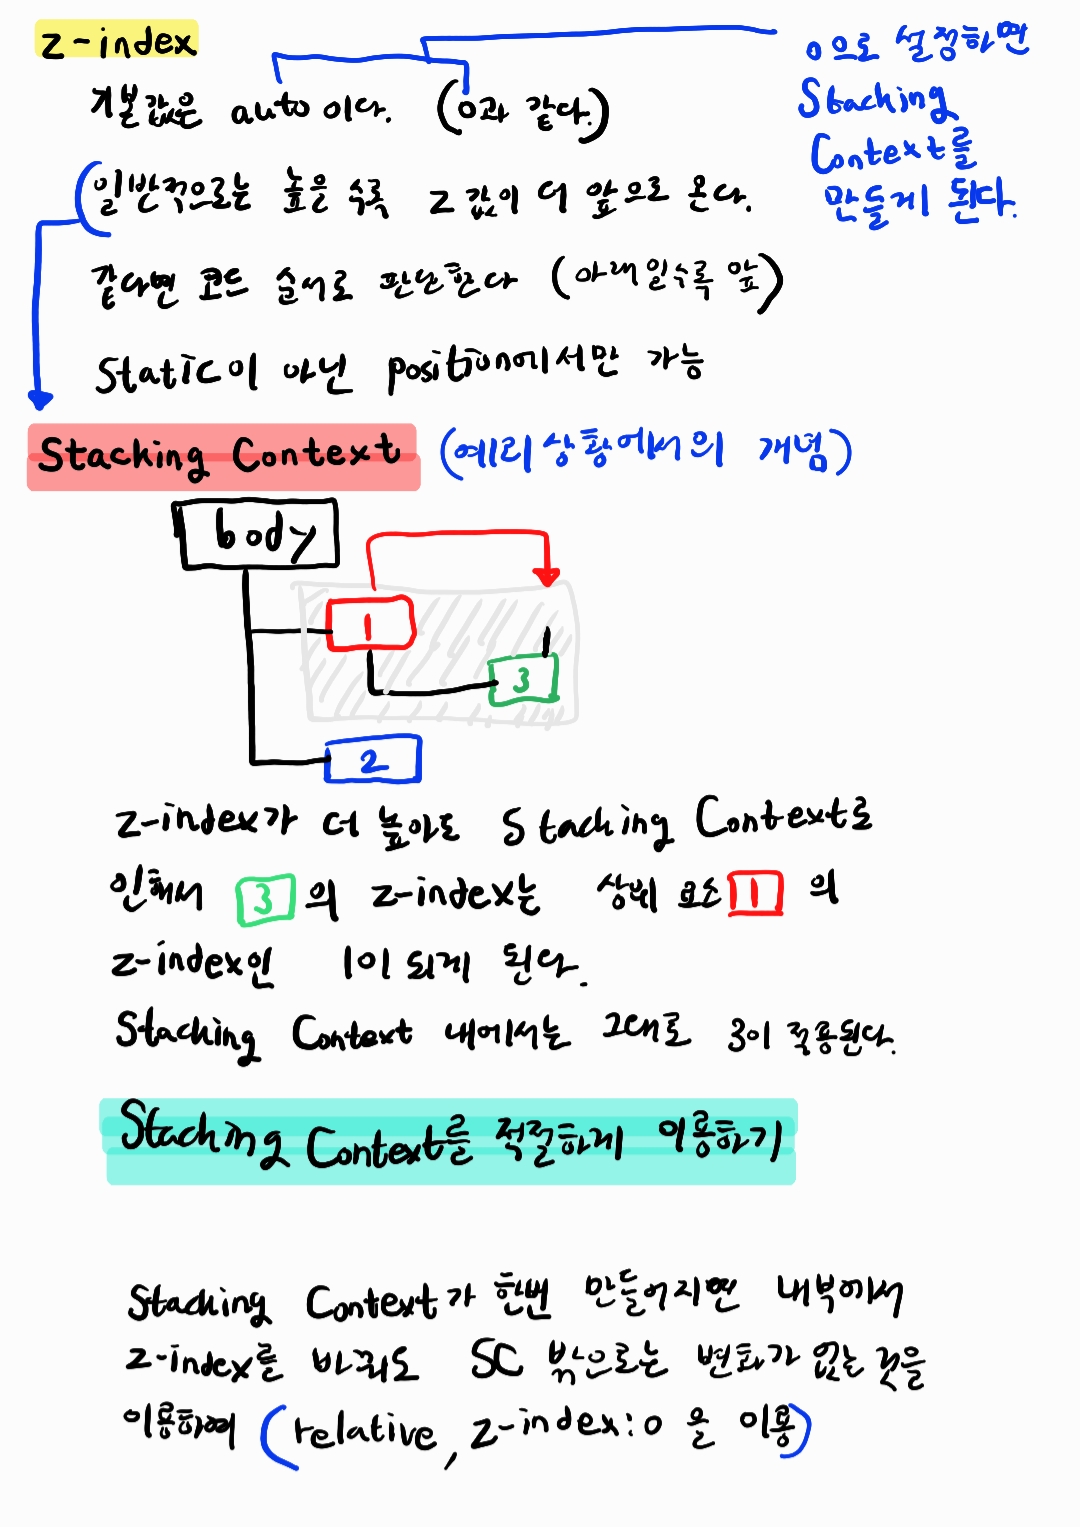 z-index
기본값은 auto이다. (0과 같다.)
0으로 설정하면
Stacking
Context를
만들게 된다.
(일반적으로는 높은 수록 z값이 더 앞으로 온다.
같다면 코드 순서로 판단한다 (아래일수록 앞)
Static이 아닌 position에서만 가능
Stacking Context (예외상황에서의 개념)
body
1
1
3
2
z-index가 더 높아도 Stacking Context로
인해서 3의 z-index는 상위 요소 1의
z-index인 1이 되게 된다.
Stacking Context 내에서는 그대로 3이 적용된다.
Stacking Context를 적절하게 이용하기
Stacking Context가 한번 만들어지면 내부에서
z-index를 바꿔도 SC 밖으로는 변화가 없는 것을
이용하여 (relative, z-index:0 을 이용)